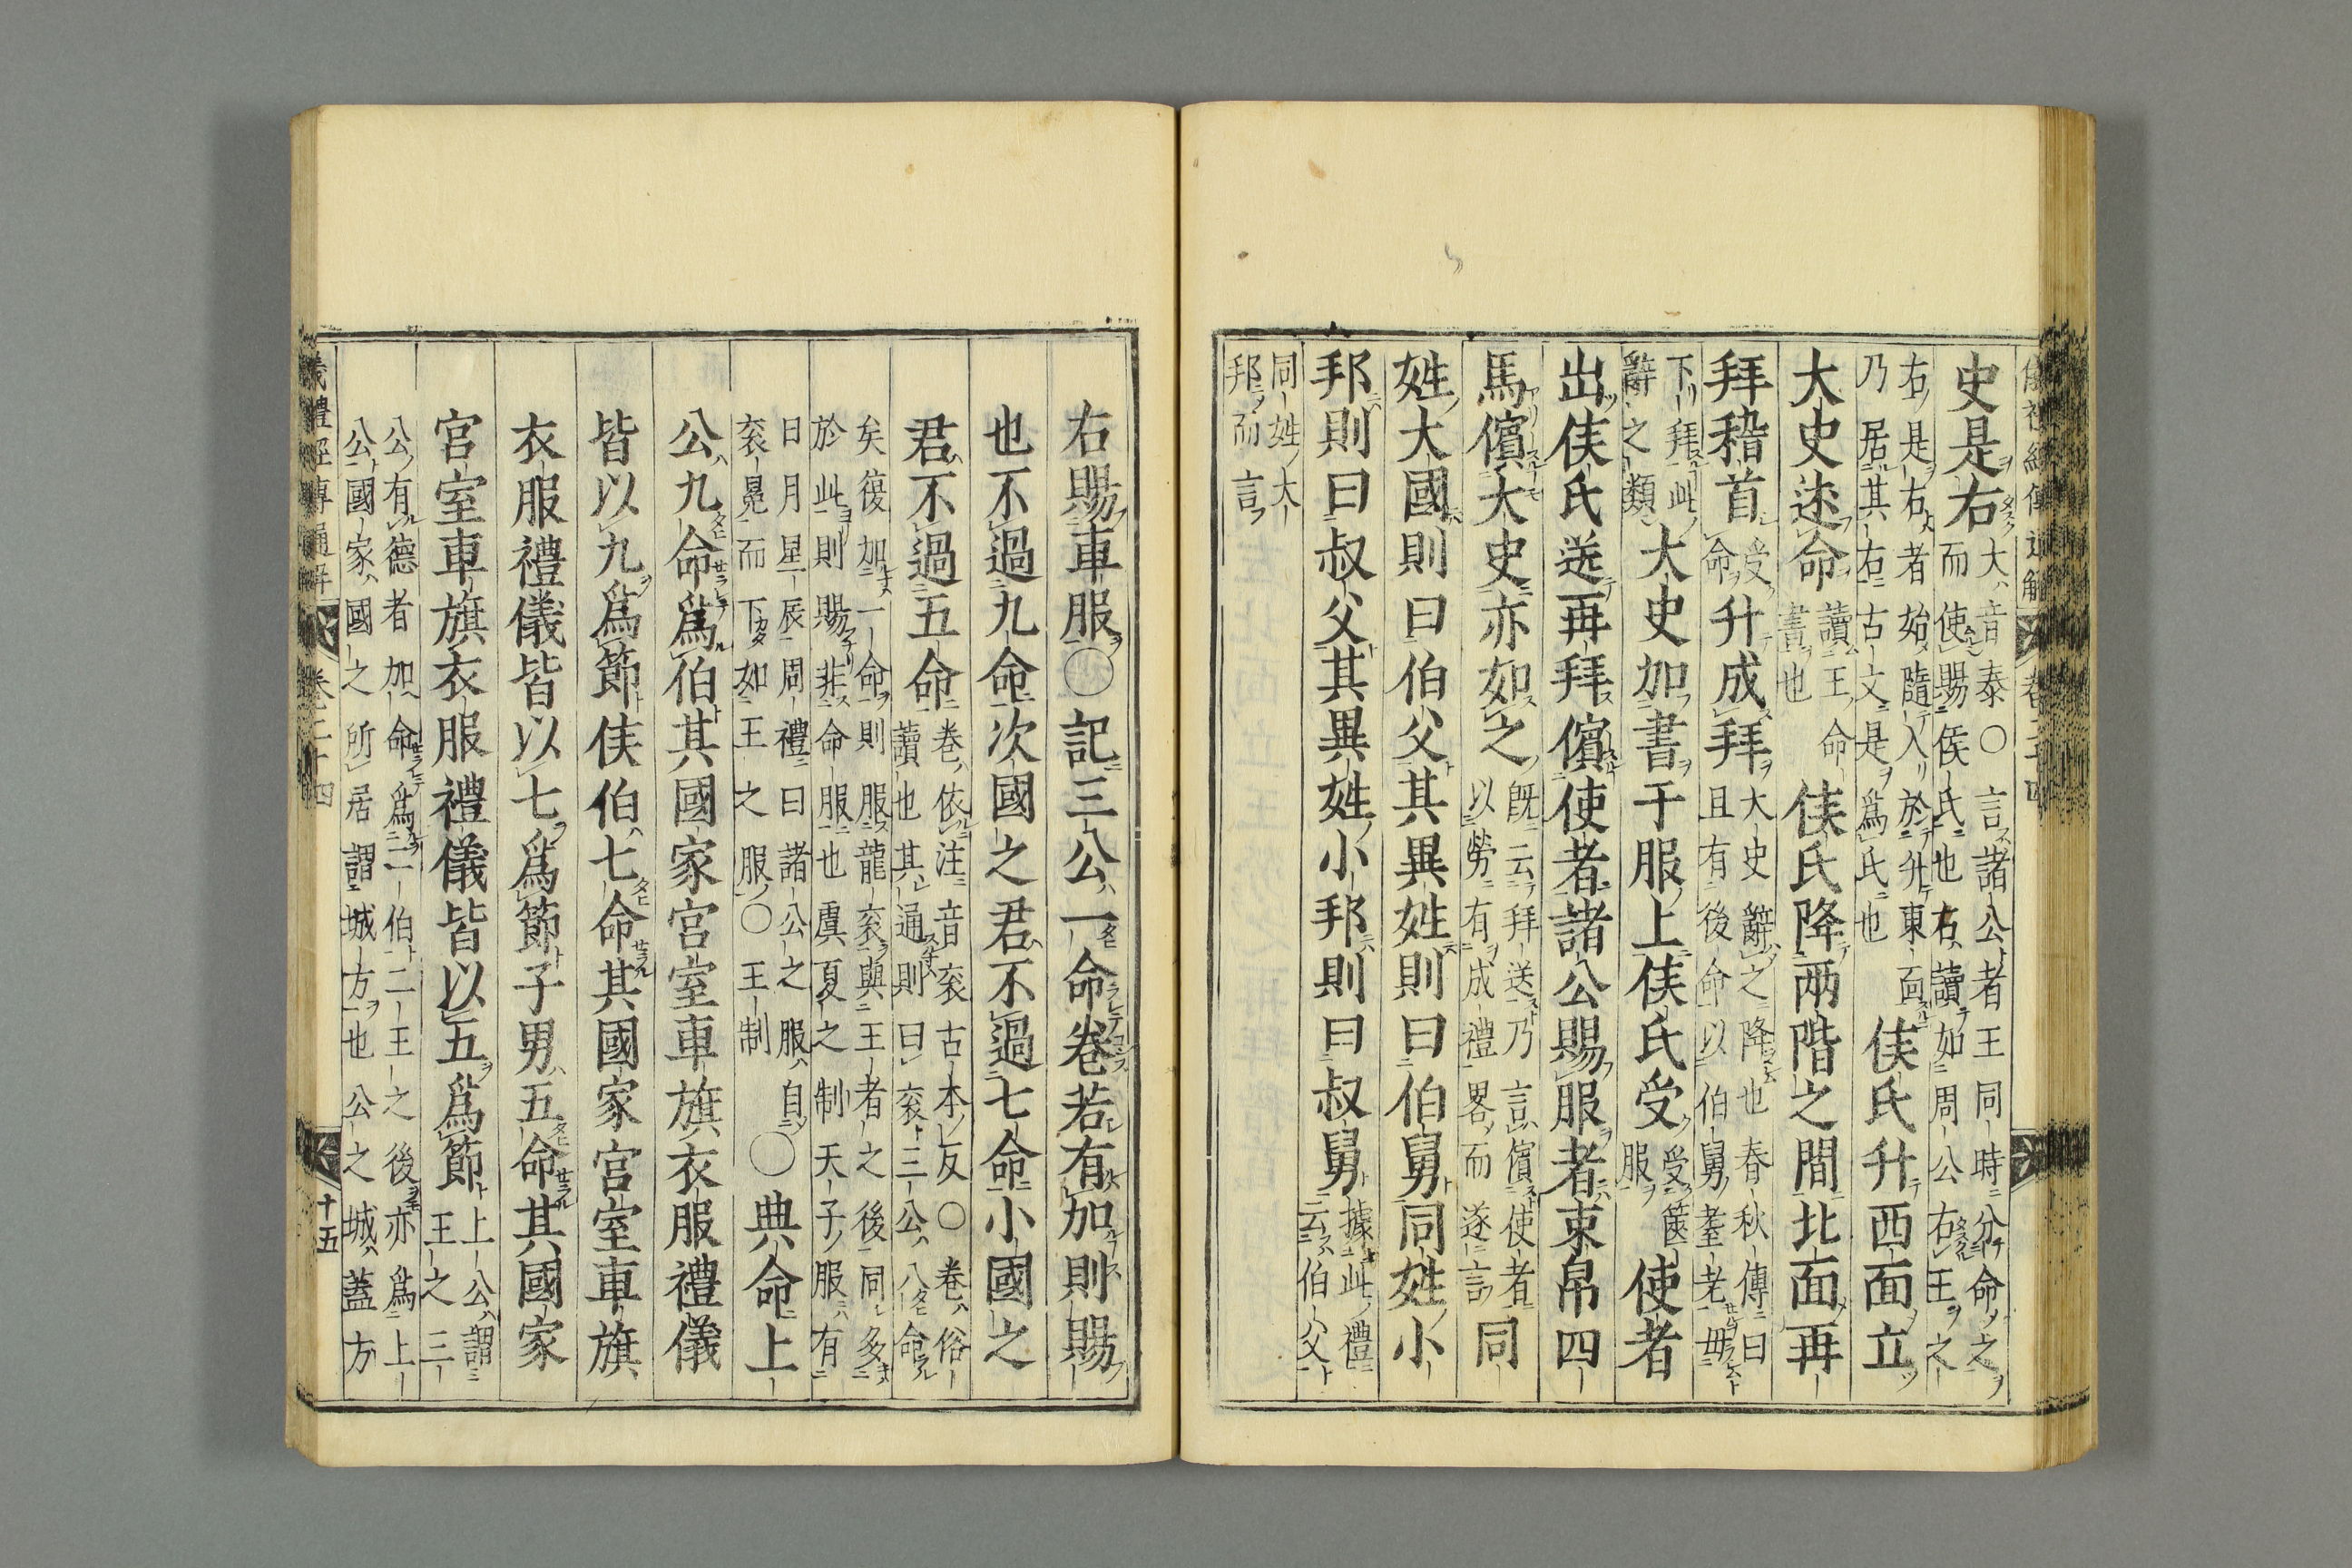 儀禮經傳通解 卷二十四
史是右
大音泰○言諸公者王同時分命之
而使賜侯氏也右讀如周公右王之
右是右者始隨入於升東面
乃居其右古文是爲氏也
侯氏升西面立
大史述命
讀王命
書也
侯氏降兩階之間北面再
拜稽首
受
命
升成拜
大史辭之降也春秋傳曰
且有後命以伯舅耋老毋
下拜此
辭之類
大史加書于服上侯氏受
受篋
服
使者
出侯氏送再拜儐使者諸公賜服者束帛四
馬儐大史亦如之
既云拜送乃言儐使者
以勞有成禮畧而遂言
同
姓大國則曰伯父其異姓則曰伯舅同姓小
邦則曰叔父其異姓小邦則曰叔舅
據此禮
云伯父
同姓大
邦而言
右賜車服○記三公一命卷若有加則賜
也不過九命次國之君不過七命小國之
君不過五命
卷依注音衮古本反○卷俗
讀也其通則曰衮三公八命
矣復加一命則服龍衮與王者之後同多
於此則賜非命服也虞夏之制天子服有
日月星辰周禮曰諸公之服自
衮冕而下如王之服○王制
○典命上
公九命爲伯其國家宮室車旗衣服禮儀
皆以九爲節侯伯七命其國家宮室車旗
衣服禮儀皆以七爲節子男五命其國家
宮室車旗衣服禮儀皆以五爲節
上公謂
王之三
公有德者加命爲二伯二王之後亦爲上
公國家國之所居謂城方也公之城蓋方
儀禮經傳通解 卷二十四 十五